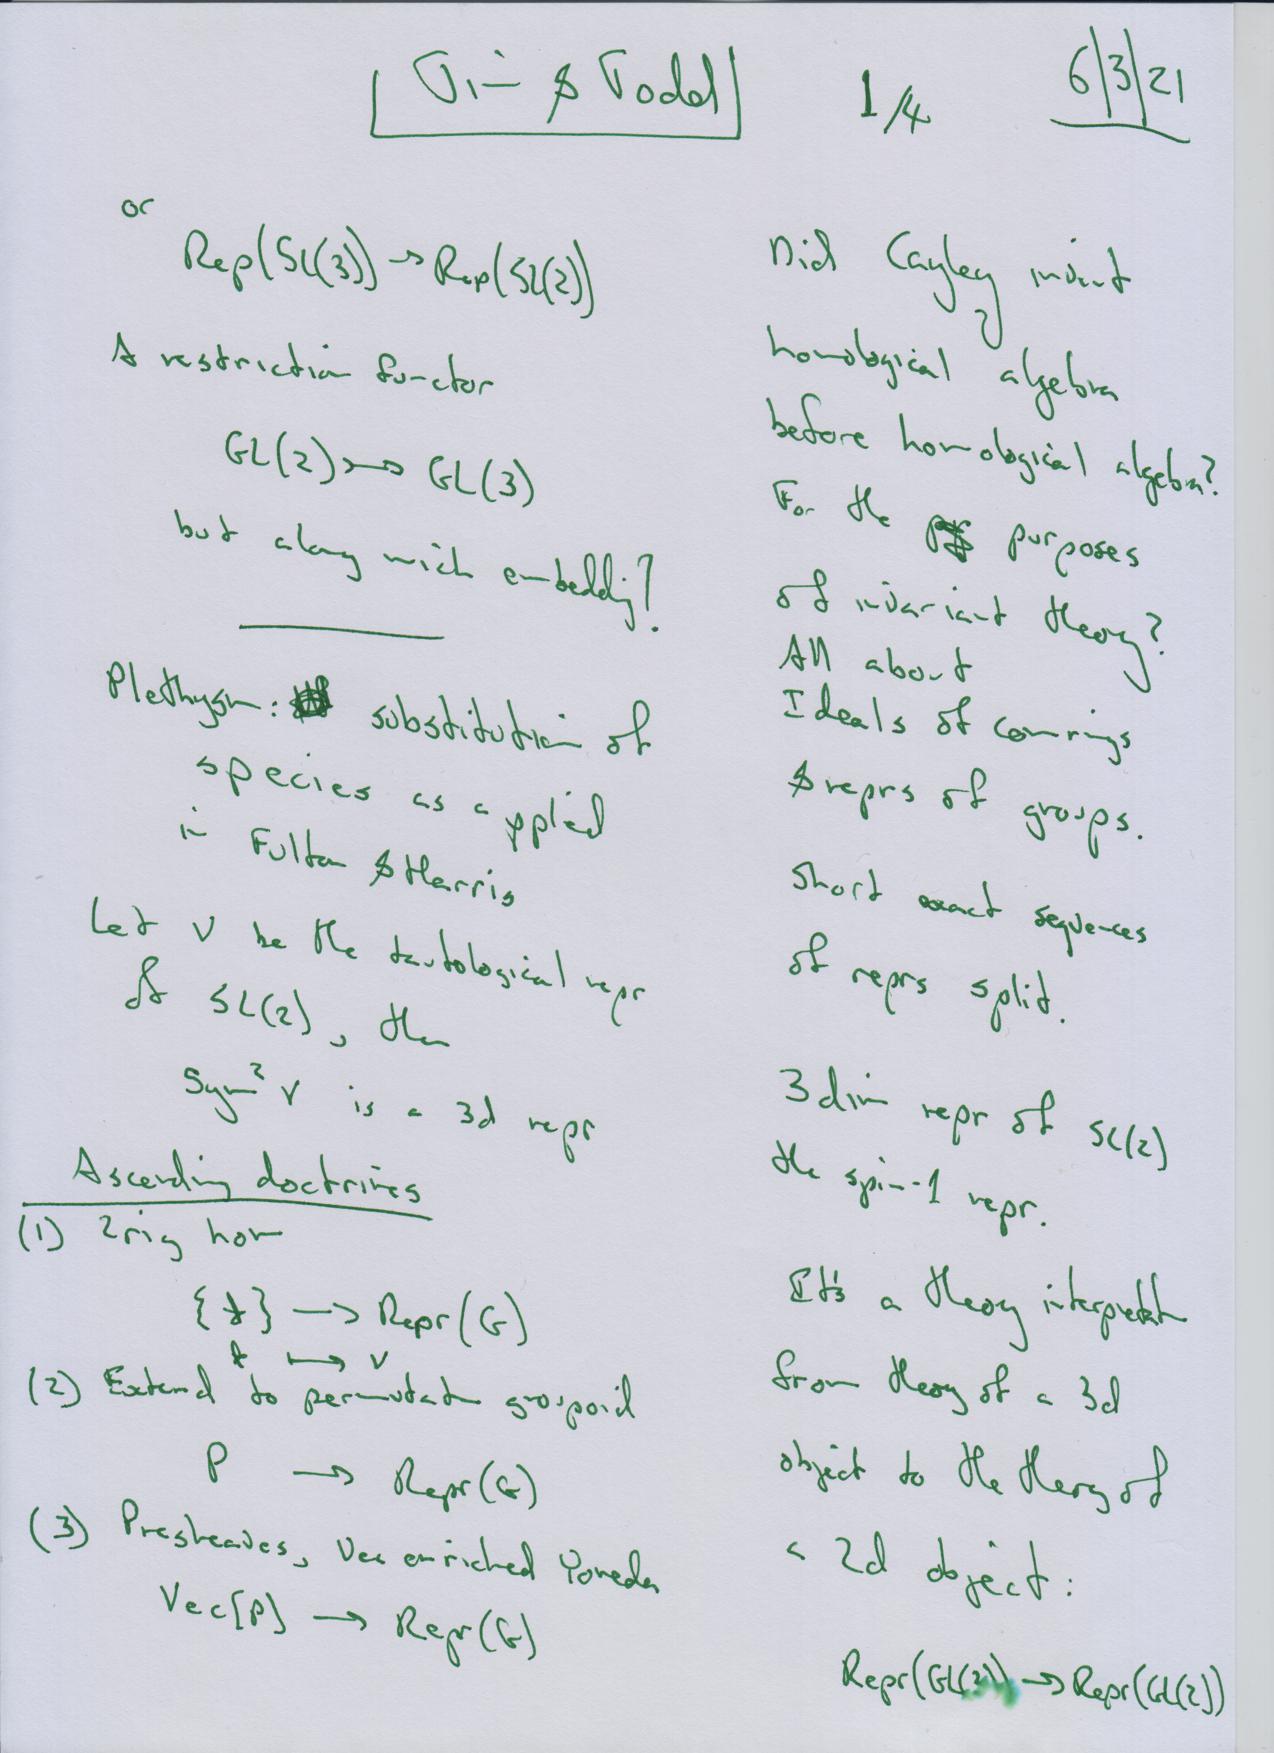 Tim & Todd
1/4
6/3/21
or
Rep(SL(3)) → Rep(SL(2))
A restriction functor
GL(2) ↣ GL(3)
but along wich embeddig?
Plethysm: substitution of
species as applied
in Fulton & Harris
Let V be the tautological repr
of SL(2), then
Sym² V is a 3d repr
Ascending doctrines
(1) 2rig hom
{x} → Repr(G)
x ↦ V
(2) Extend to permutatn groupoid
P → Repr(G)
(3) Presheaves, Vec enriched Yoneda
Vec[P] → Repr(G)
Did Cayley invent
homological algebra
before homological algebra?
For the purposes
of invariant theory?
All about
Ideals of comrings
& reprs of groups.
Short exact sequences
of reprs split.
3 dim repr of SL(2)
the spin-1 repr.
It's a theory interpretatn
from theory of a 3d
object to the theory of
a 2d object:
Repr(GL(3)) → Repr(GL(2))